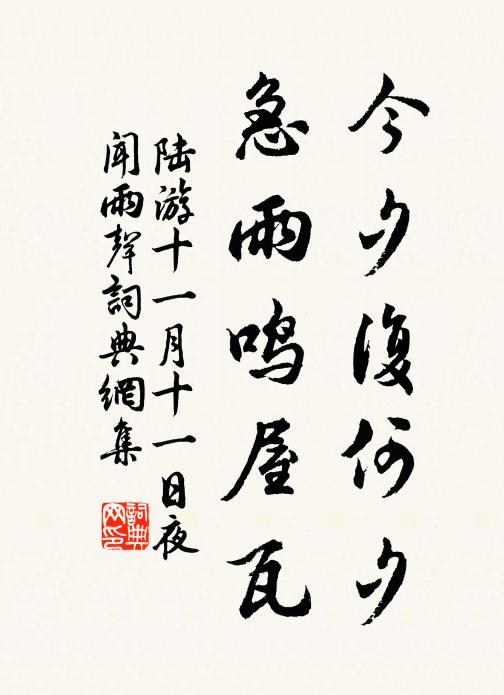 今夕復何夕
急雨鳴屋瓦
陆游十一月十一日夜
闻雨聲詞典網集
詞典
网印